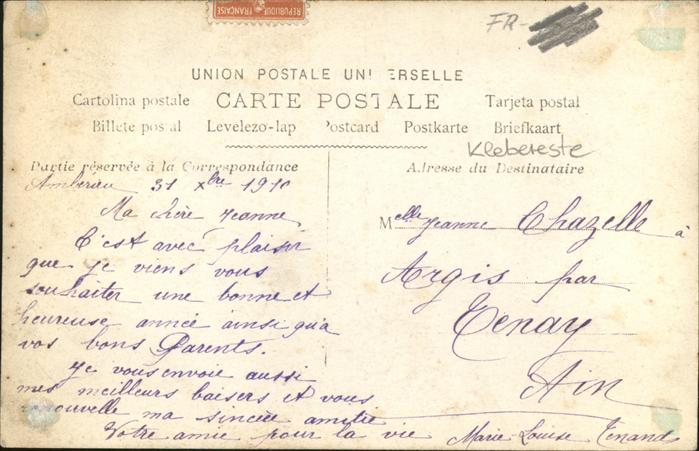 REPUBLIQUE FRANÇAISE
FR-
UNION POSTALE UNI ERSELLE
Cartolina postale CARTE POSTALE Tarjeta postal
Billete postal Levelezo-lap Postcard Postkarte Briefkaart
Klebereste
Partie réservée à la Correspondance
Ambérieu 31 Xbre 1910
Ma chère Jeanne,
C'est avec plaisir
que je viens vous
souhaiter une bonne et
heureuse année ainsi qu'a
vos bons Parents.
Je vous envoie aussi
mes meilleurs baisers et vous
renouvelle ma sincère amitié
Votre amie pour la vie Marie-Louise Tenand
Adresse du Destinataire
Melle Jeanne Chazelle à
Argis par
Tenay
Ain